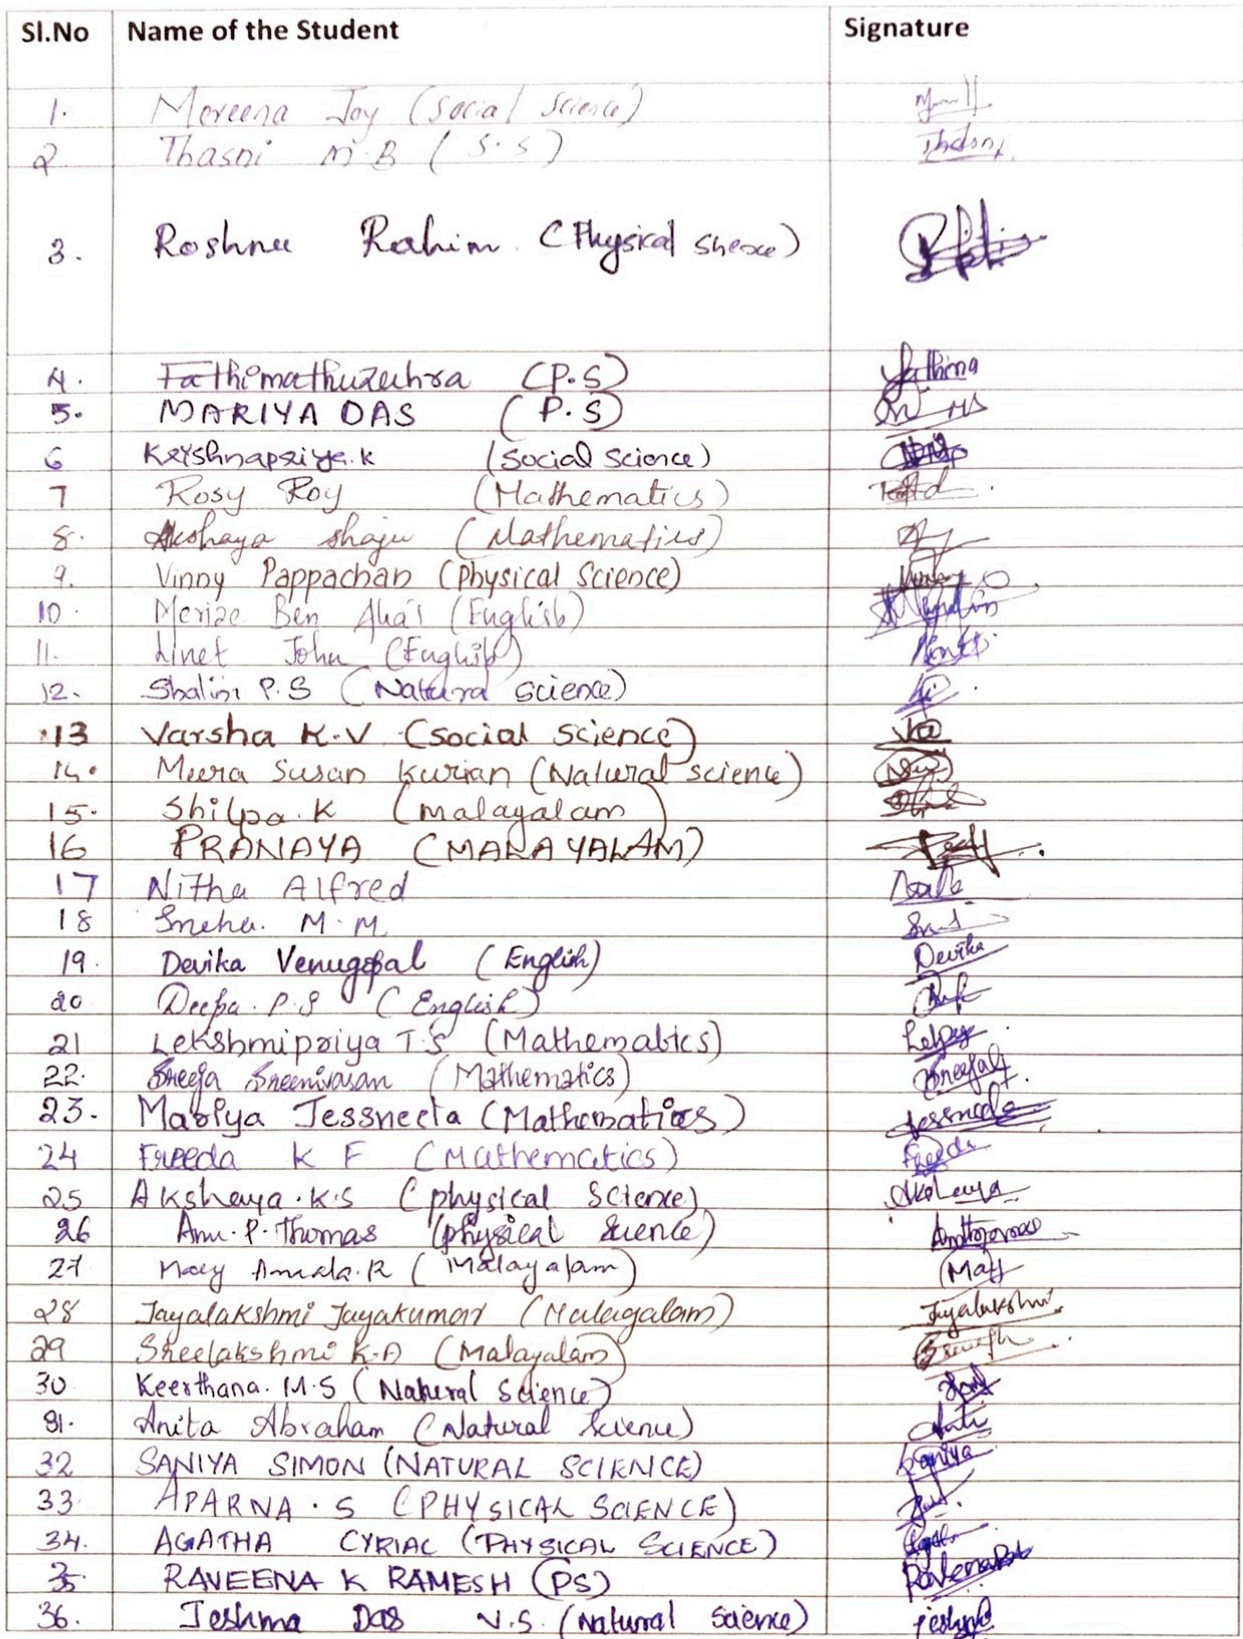 Sl.No Name of the Student Signature
1. Mereena Joy (Social Science)
2 Thasni M.B (S.S) Thasni
3. Roshnee Rahim (Physical
4. Fathimathuzuhra (P.S) Fathima
5. MARIYA DAS (P.S)
6 Krishnapriya.k (Social Science)
7 Rosy Roy (Mathematics)
8. Akshaya Shaju (Mathematics)
9. Vinny Pappachan (Physical Science)
10. Ben (English)
11. Linet John (English)
12. Shalini P.S (Natural Science)
13 Varsha K.V (Social Science)
14. Meera Susan Kurian (Natural science)
15. Shilpa.K (Malayalam)
16 PRANAYA (MALAYALAM)
17 Nitha Alfred
18 Sneha. M.M
19. Devika Venugopal (English) Devika
20 Deepa.P.S (English)
21 Lekshmipriya T.S (Mathematics)
22. Sreeja Sreenivasan (Mathematics)
23. Mariya Jessneeta (Mathematics)
24 Freeda K F (Mathematics) Freeda
25 Akshaya.K.S (physical Science) Akshaya
26 Anu.P.Thomas (physical Science)
27 Mary Amala.R (Malayalam) Mary
28 Jayalakshmi Jayakumar (Malayalam) Jayalakshmi
29 Sreelakshmi K.A (Malayalam)
30 Keerthana.M.S (Natural Science)
31. Anita Abraham (Natural Science)
32 SANIYA SIMON (NATURAL SCIENCE) Saniya
33 APARNA.S (PHYSICAL SCIENCE)
34. AGATHA CYRIAC (PHYSICAL SCIENCE)
35 RAVEENA K RAMESH (PS)
36. Jeshma Das V.S. (Natural Science)